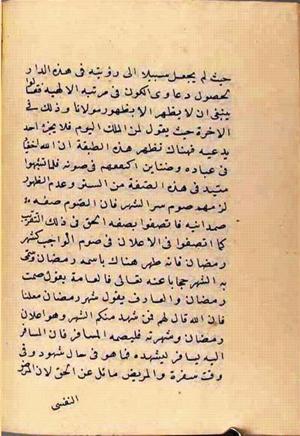 حيث لم يجعل سبيلا الى رؤيته في هذه الدار
لحصول دعاوى الكون في مرتبه الالهية فقالوا
ينبغي ان لا يظهر الا بظهور مولانا وذلك في
الاخرة حيث يقول لمن الملك اليوم فلا يجرء احد
يدعيه فهناك تظهر هذه الطبقة ان الله اخفيا
في عباده وضنائن اكنهم في صونه فلما تنبهوا
متبد في هذه الصفة من الستر وعدم الظهور
لزمهم صوم سر الشهر فان الصوم صفه
صمدانيه فاتصفوا بصفه الحق في ذلك التقريب
كما اتصفوا في الاعلان في صوم الواجب كشهر
رمضان فانه ظهر هناك باسمه رمضان وسمى
به الشهر حجابا عنه تعالى فالعامة يقول صمت
رمضان والعارف يقول شهر رمضان معلنا
فان الله قال لهم فمن شهد منكم الشهر وهو اعلان
رمضان وشهرته فليصمه المسافر فان المسافر
اليه يسافر ليشهده فما هو في حال شهود وفي
وقت سفره والمريض مائل عن الحق لان المرض
النفسي